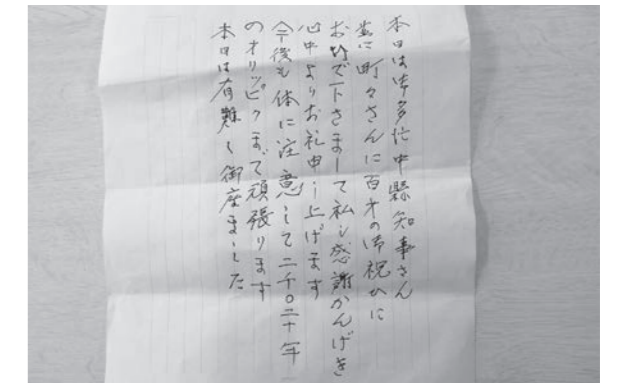 本日は御多忙中縣知事さん
並に町々さんに百才の御祝ひに
お出で下さまして私し感謝かんげき
心中よりお礼申し上げます
今後も体に注意して二千〇二十年
のオリッピクまで頑張ります
本日は有難く御座ました